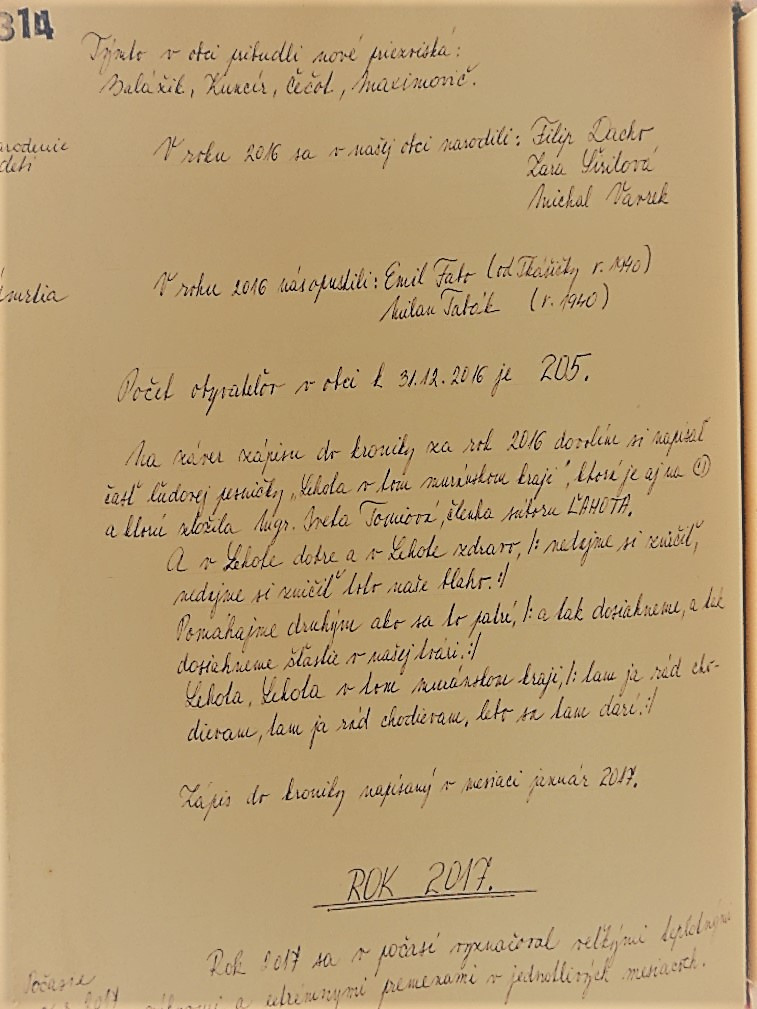 314
Týmto v obci pribudli nové priezviská:
Balážik, Kuncír, Čéčot, Maximovič.
narodenie
deti
V roku 2016 sa v našej obci narodili: Filip Dacho
Zara Širilová
Michal Vavrek
úmrtia
V roku 2016 nás opustili: Emil Fabo (od r. 1940)
Milan Tabák (r. 1940)
Počet obyvateľov v obci k 31.12.2016 je 205.
Na záver zápisu do kroniky za rok 2016 dovolím si napísať
časť ľudovej pesničky „Lehota v tom muránskom kraji", ktorá je aj na
a ktorú zložila Mgr. Iveta Tomiová, členka súboru ĽAHOŤA.
A v Lehote dobre a v Lehote zdravo, /: nedajme si zničiť,
nedajme si zničiť toto naše blaho. :/
Pomáhajme druhým ako sa to patrí, /: a tak dosiahneme, a tak
dosiahneme šťastie v našej tvári. :/
Lehota, Lehota v tom muránskom kraji, /: tam ja rád cho-
dievam, tam ja rád chodievam, lebo sa tam darí. :/
Zápis do kroniky napísaný v mesiaci január 2017.
ROK 2017.
Rok 2017 sa v počasí vyznačoval veľkými teplotnými
Počasie
2017
a extrémnymi premenami v jednotlivých mesiacoch.